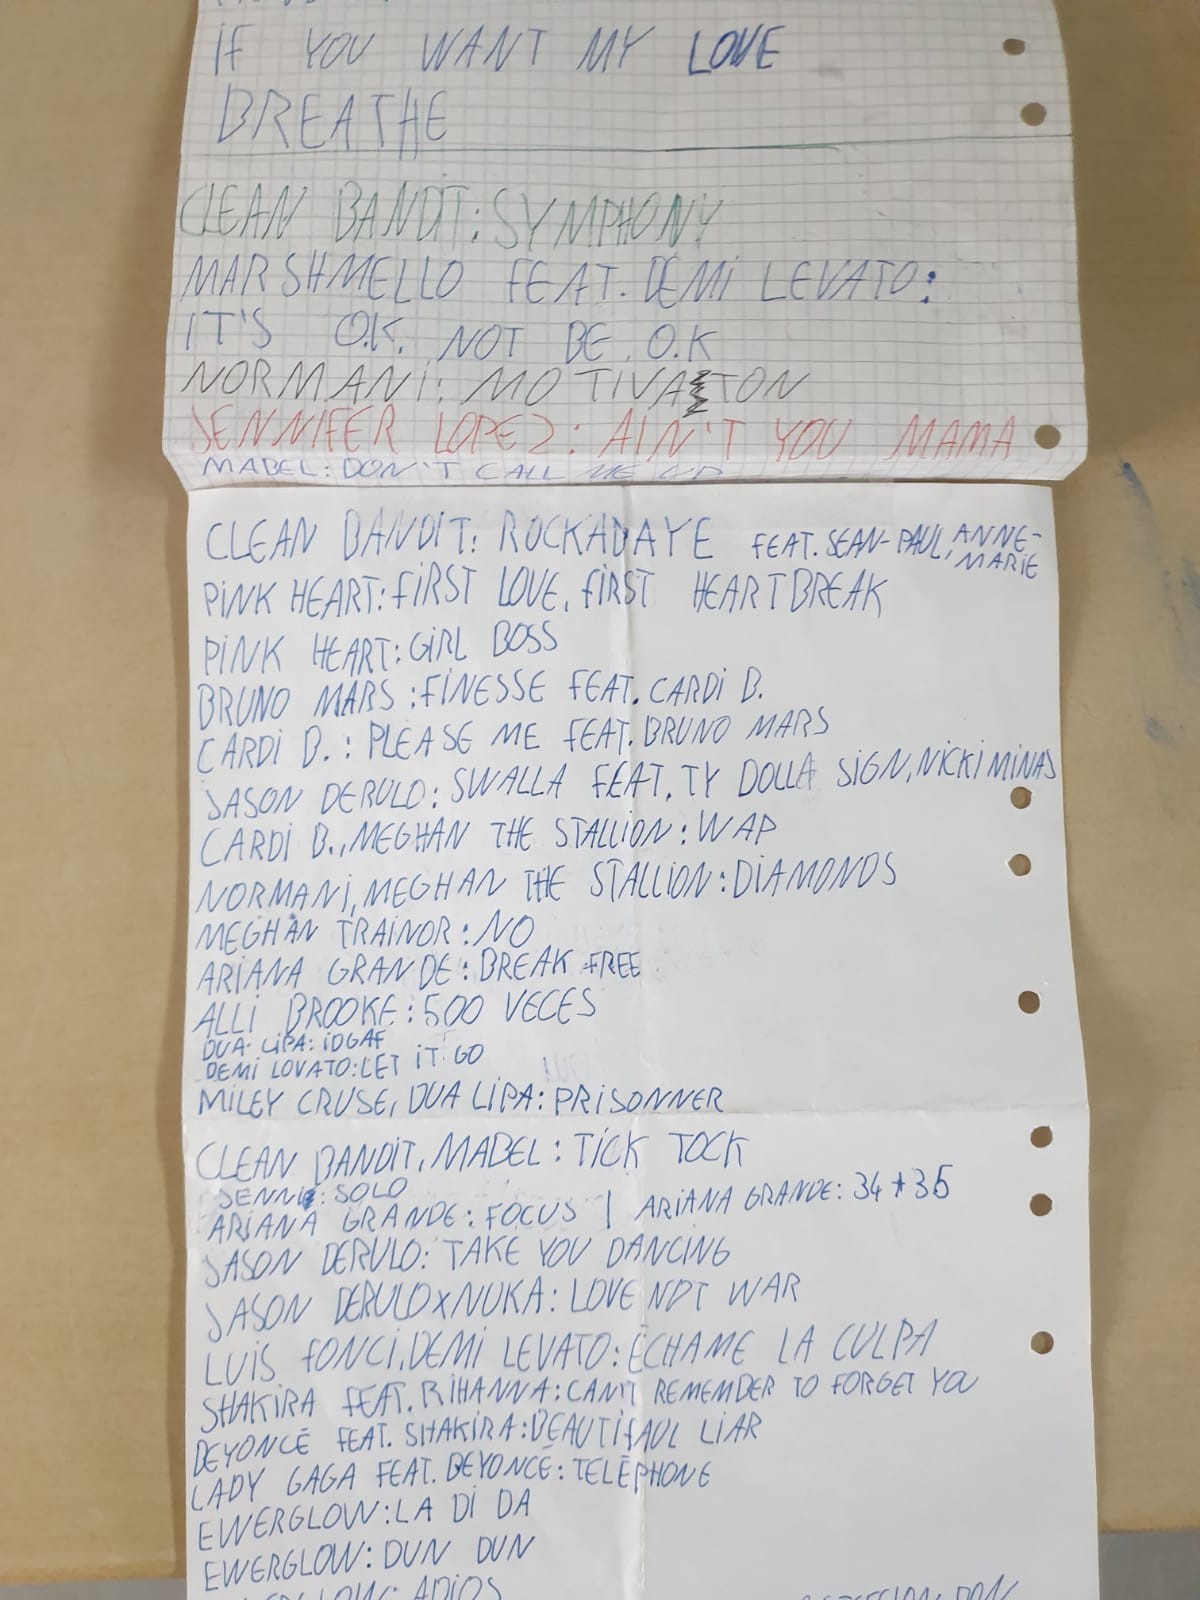 IF YOU WANT MY LOVE
BREATHE
CLEAN BANDIT: SYMPHONY
MARSHMELLO FEAT. DEMI LEVATO:
IT'S O.K. NOT BE O.K
NORMANI: MOTIVATON
JENNIFER LOPEZ: AIN'T YOU MAMA
MABEL: DON'T CALL ME UP
CLEAN BANDIT: ROCKADAYE FEAT. SEAN-PAUL, ANNE-
MARIE
PINK HEART: FIRST LOVE, FIRST HEARTBREAK
PINK HEART: GIRL BOSS
BRUNO MARS: FINESSE FEAT. CARDI B.
CARDI B.: PLEASE ME FEAT. BRUNO MARS
JASON DERULO: SWALLA FEAT. TY DOLLA SIGN, NICKI MINAS
CARDI B., MEGHAN THE STALLION: WAP
NORMANI, MEGHAN THE STALLION: DIAMONDS
MEGHAN TRAINOR: NO
ARIANA GRANDE: BREAK FREE
ALLI BROOKE: 500 VECES
DUA LIPA: IDGAF
DEMI LOVATO: LET IT GO
MILEY CRUSE, DUA LIPA: PRISONNER
CLEAN BANDIT, MABEL: TICK TOCK
JENNIE: SOLO
ARIANA GRANDE: FOCUS | ARIANA GRANDE: 34+35
JASON DERULO: TAKE YOU DANCING
JASON DERULO X NUKA: LOVE NOT WAR
LUIS FONCI, DEMI LEVATO: ÉCHAME LA CULPA
SHAKIRA FEAT. RIHANNA: CAN'T REMEMBER TO FORGET YOU
BEYONCÉ FEAT. SHAKIRA: BEAUTIFAUL LIAR
LADY GAGA FEAT. BEYONCÉ: TELÉPHONE
EWERGLOW: LA DI DA
EWERGLOW: DUN DUN
ADIOS